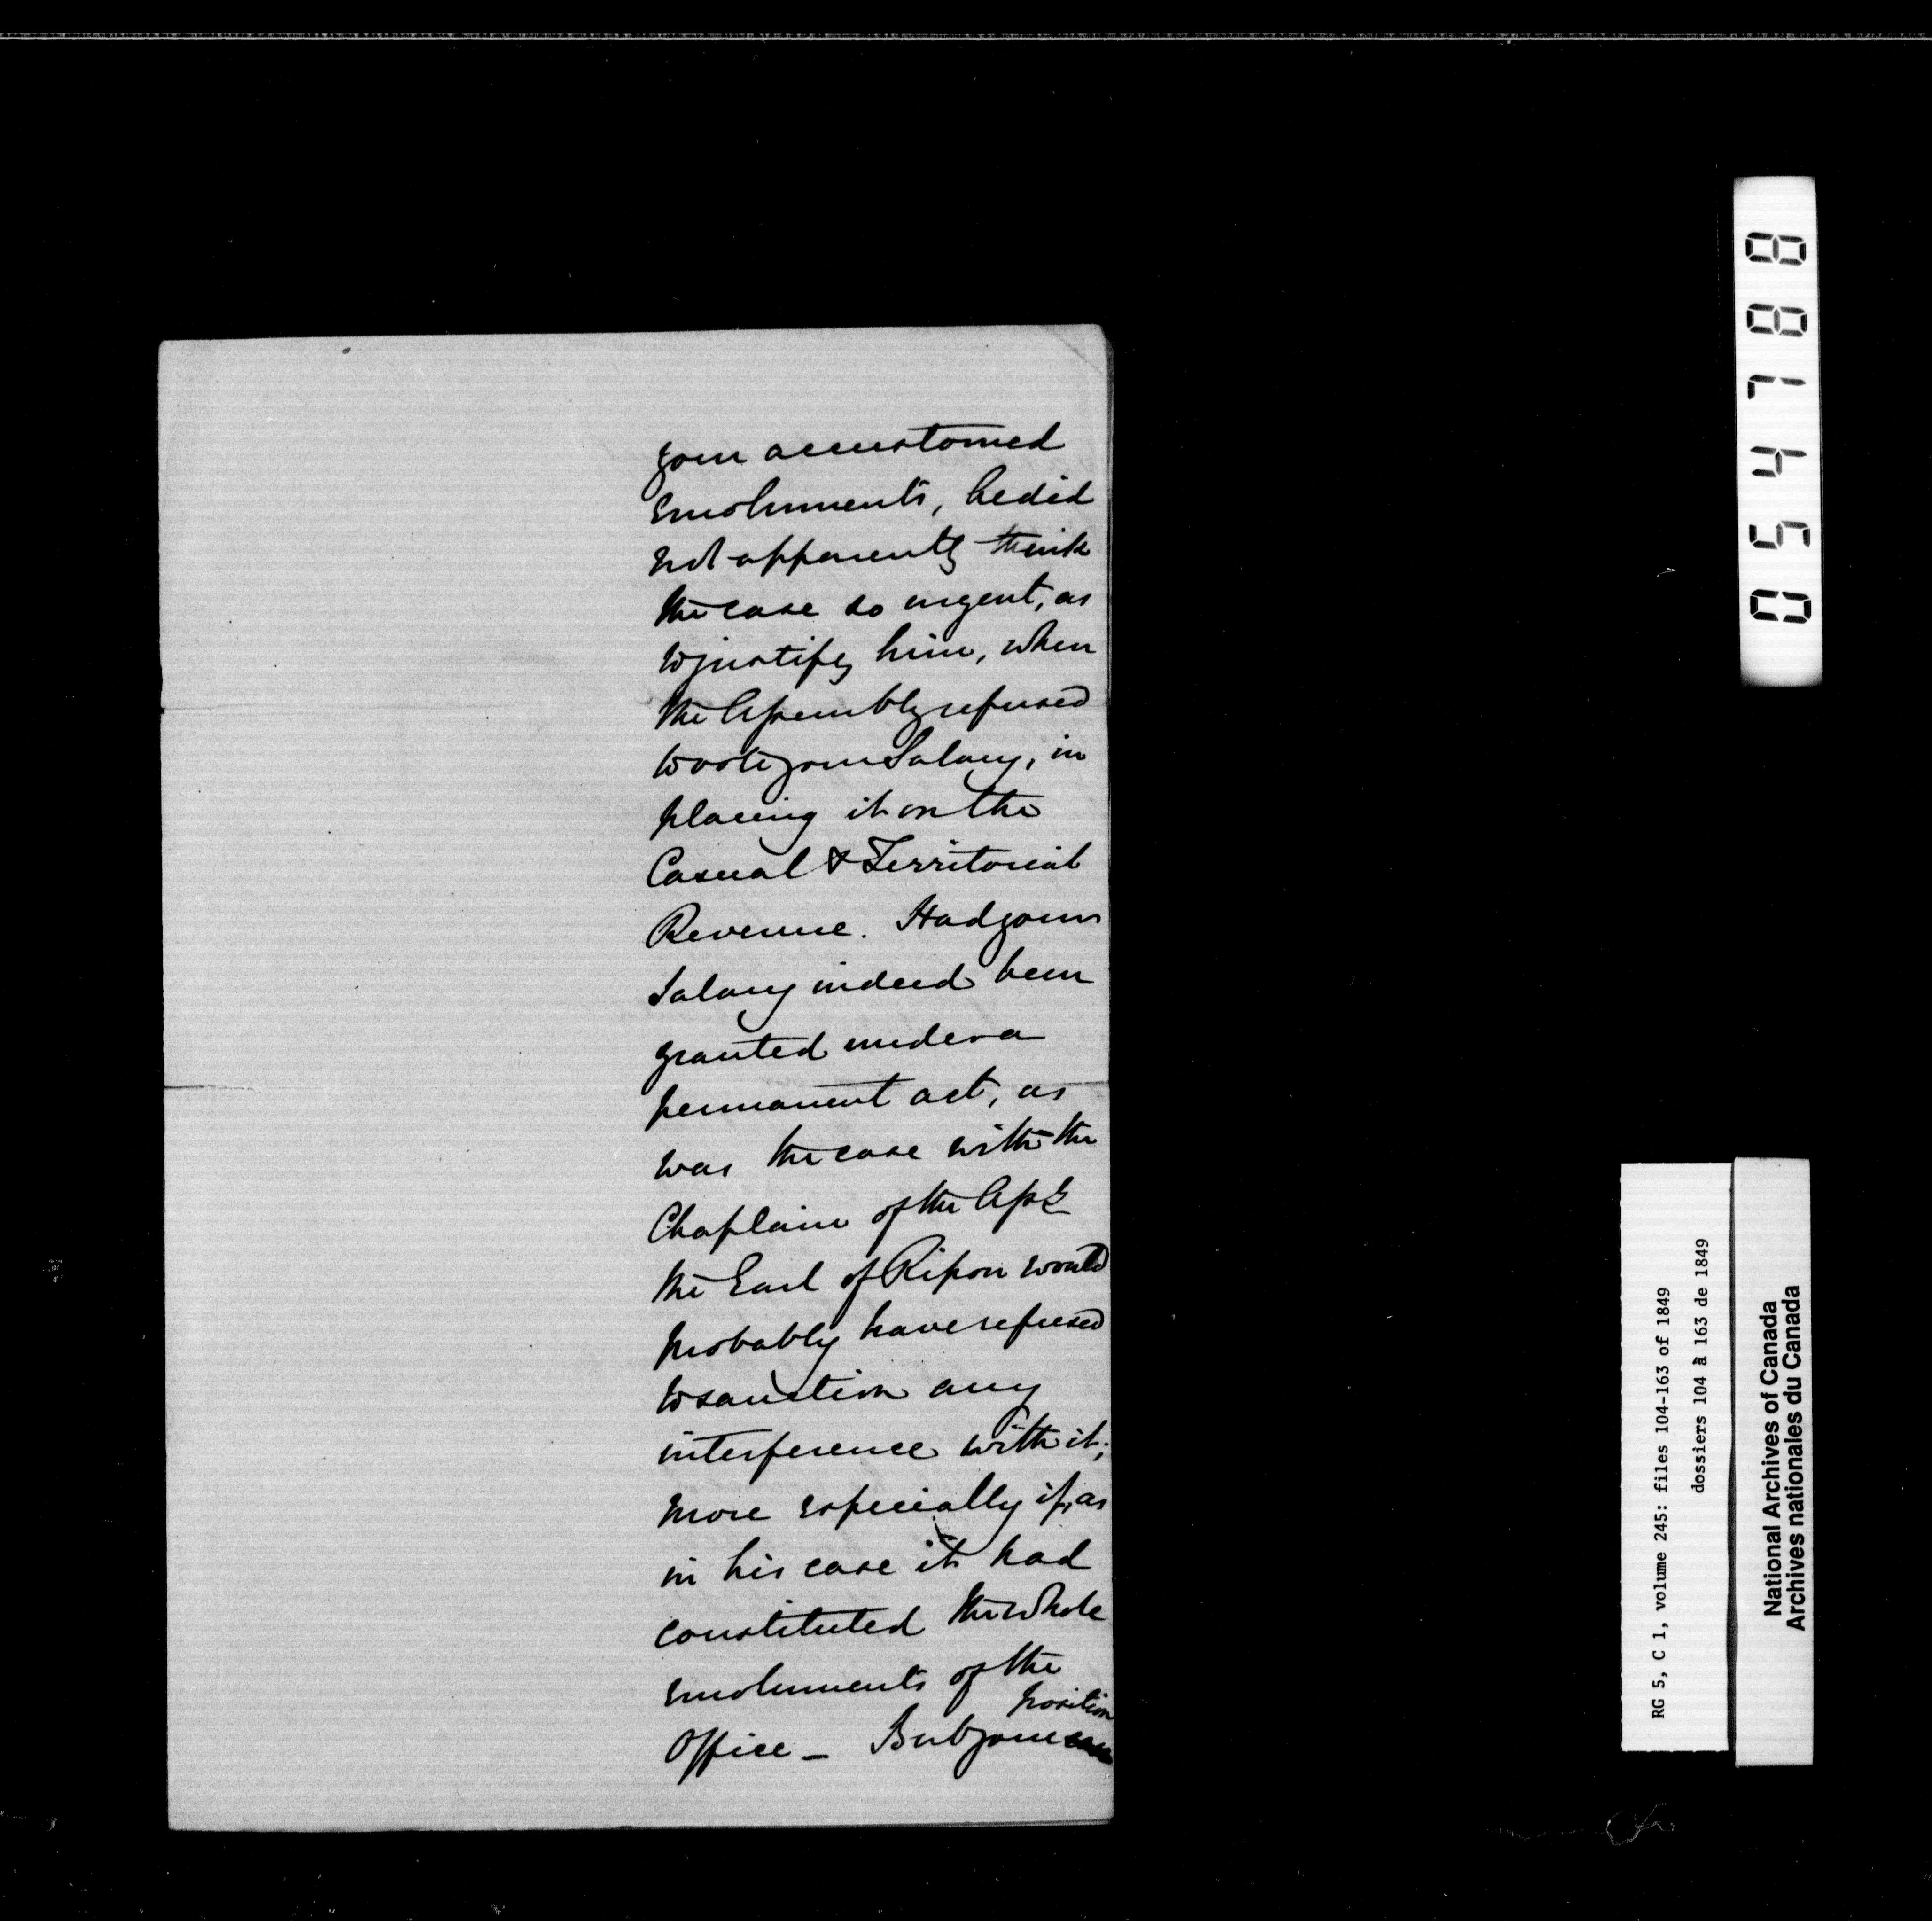 your accustomed
emoluments, he did
not apparently think
the case so urgent, as
to justify him, when
the Assembly refused
to vote your Salary, in
placing it on the
Casual & Territorial
Revenue. Had your
Salary indeed been
granted under a
permanent act, as
was the case with the
Chaplain of the Assy
the Earl of Ripon would
probably have refused
to sanction any
interference with it;
more especially if, as
in his case it had
constituted the whole
emoluments of the
position
Office – But your
054788
RG 5, C 1, volume 245: files 104-163 of 1849
dossiers 104 à 163 de 1849
National Archives of Canada
Archives nationales du Canada